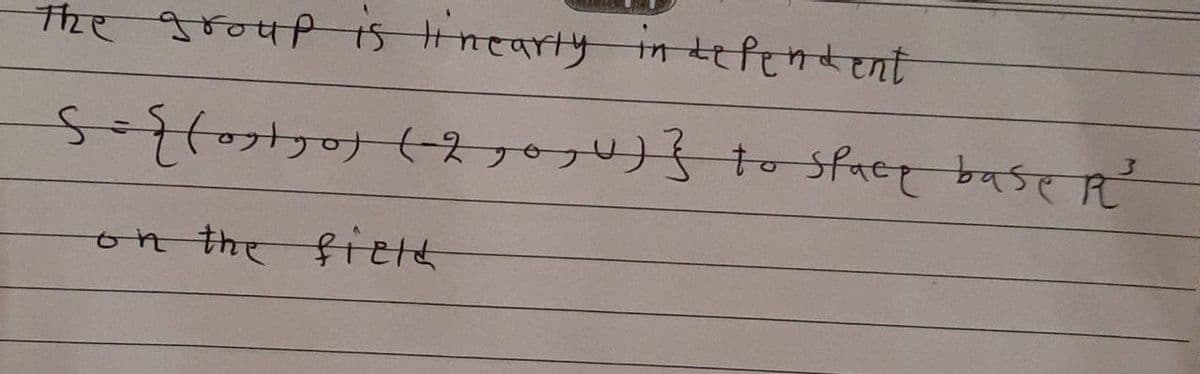 The group is linearly independent
S = {(0,1,0) (-2,0,4)} to space base R³
on the field